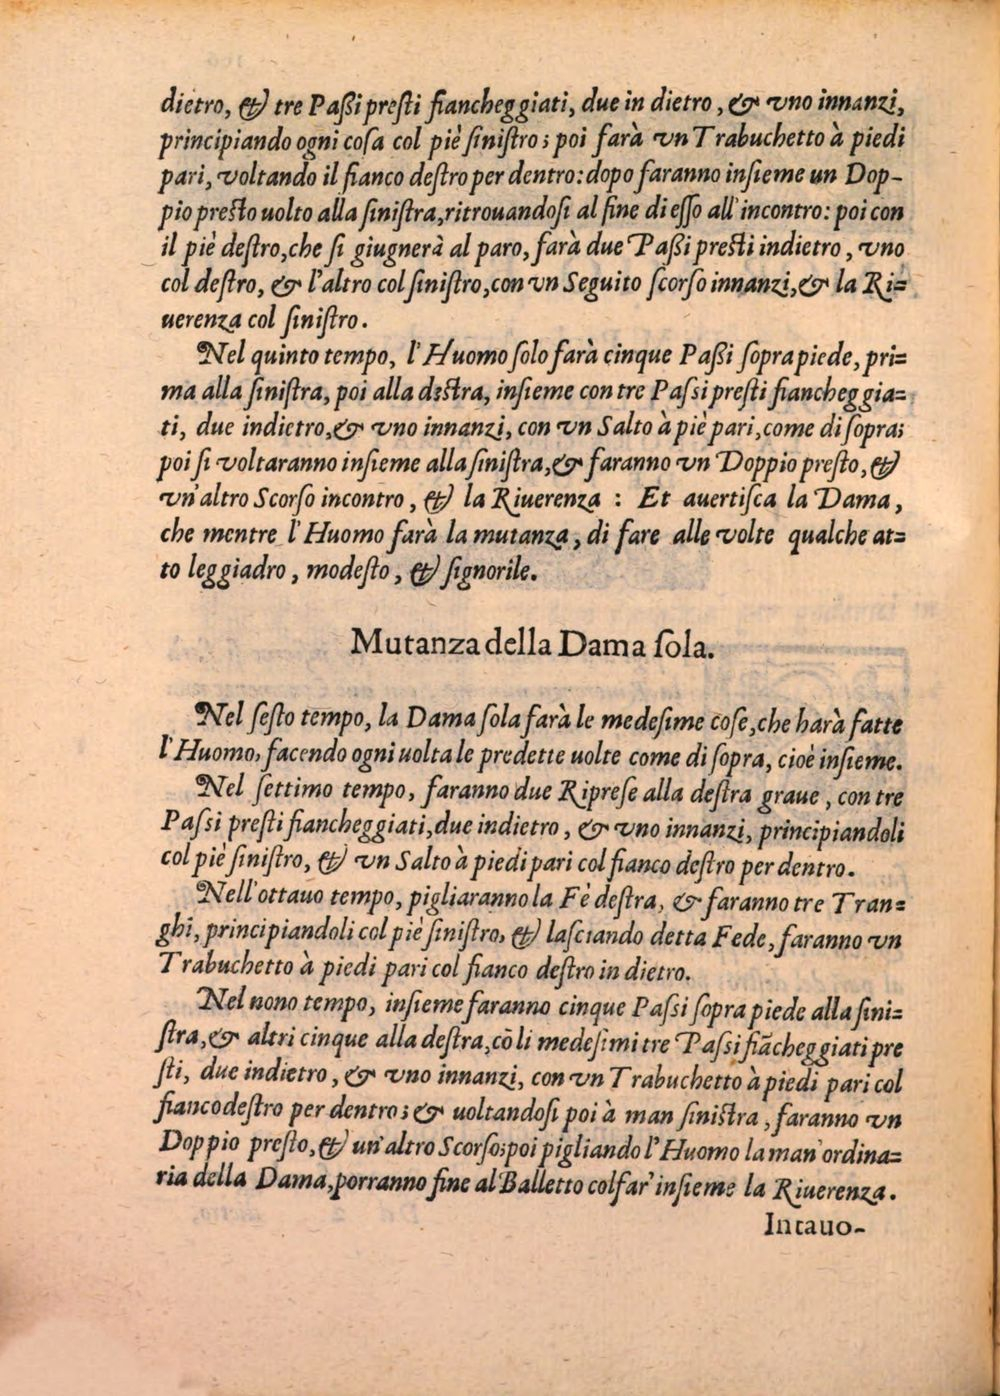 dietro, & tre Paßi preſti fiancheggiati, due in dietro, & vno innanzi,
principiando ogni coſa col piè ſiniſtro; poi farà vn Trabuchetto à piedi
pari, voltando il fianco deſtro per dentro: dopo faranno inſieme un Dop-
pio preſto uolto alla ſiniſtra, ritrouandoſi al fine di eſſo all'incontro: poi con
il piè deſtro, che ſi giugnerà al paro, farà due Paßi preſti indietro, vno
col deſtro, & l'altro col ſiniſtro, con vn Seguito ſcorſo innanzi, & la Ri=
uerenza col ſiniſtro.
Nel quinto tempo, l'Huomo ſolo farà cinque Paßi ſopra piede, pri=
ma alla ſiniſtra, poi alla deſtra, inſieme con tre Paſsi preſti fiancheggia=
ti, due indietro, & vno innanzi, con vn Salto à piè pari, come di ſopra;
poi ſi voltaranno inſieme alla ſiniſtra, & faranno vn Doppio preſto, &
vn'altro Scorſo incontro, & la Riuerenza : Et auertiſca la Dama,
che mentre l'Huomo farà la mutanza, di fare alle volte qualche at=
to leggiadro, modeſto, & ſignorile.
Mutanza della Dama ſola.
Nel ſeſto tempo, la Dama ſola farà le medeſime coſe, che harà fatte
l'Huomo, facendo ogni uolta le predette uolte come di ſopra, cioè inſieme.
Nel ſettimo tempo, faranno due Ripreſe alla deſtra graue, con tre
Paſsi preſti fiancheggiati, due indietro, & vno innanzi, principiandoli
col piè ſiniſtro, & vn Salto à piedi pari col fianco deſtro per dentro.
Nell'ottauo tempo, pigliaranno la Fè deſtra, & faranno tre Tran=
ghi, principiandoli col piè ſiniſtro, & laſciando detta Fede, faranno vn
Trabuchetto à piedi pari col fianco deſtro in dietro.
Nel nono tempo, inſieme faranno cinque Paſsi ſopra piede alla ſini=
ſtra, & altri cinque alla deſtra, cō li medeſimi tre Paſsi fiācheggiati pre
ſti, due indietro, & vno innanzi, con vn Trabuchetto à piedi pari col
fianco deſtro per dentro; & uoltandoſi poi à man ſiniſtra, faranno vn
Doppio preſto, & un'altro Scorſo; poi pigliando l'Huomo la man'ordina=
ria della Dama, porranno fine al Balletto col far'inſieme la Riuerenza.
Intauo-